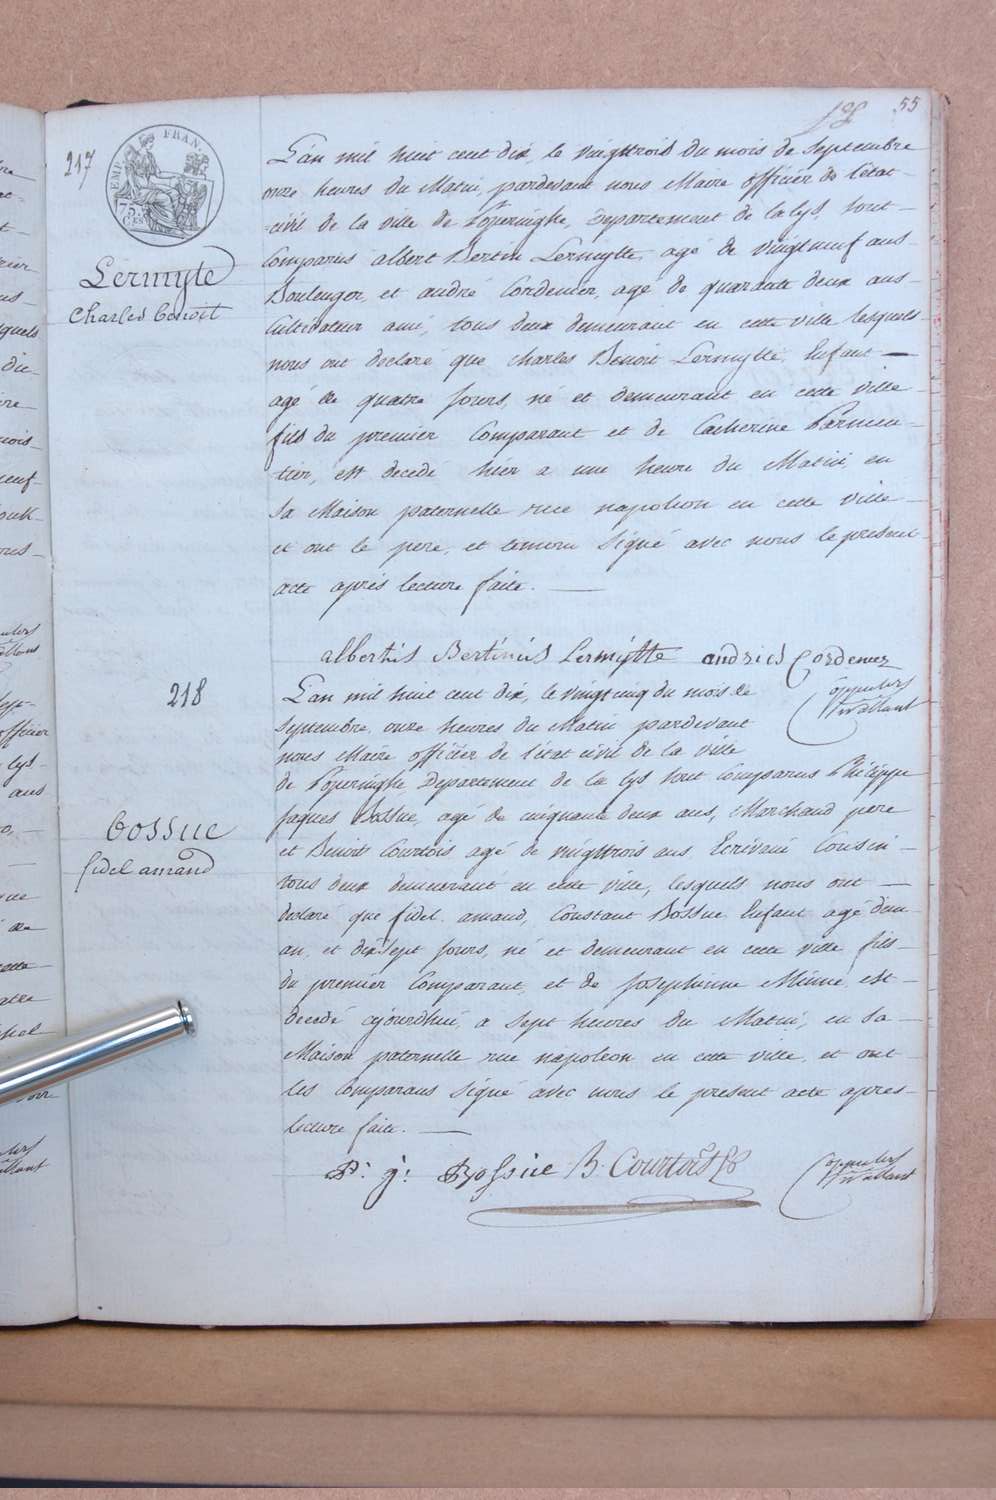 55
217
EMP
FRAN.
Lermyte
Charles benoit
L'an mil huit cent dix, le vingttrois du mois de Septembre
onze heures du Matin, pardevant nous Maire officier de l'état
civil de la ville de Poperinghe, Departement de la lys, sont
Comparus albert Bertin Lermytte, agé de vingtneuf ans
Boulenger, et andré Cordemer, agé de quarante deux ans
Cultivateur ami, tous deux demeurant en cette ville lesquels
nous ont declaré que Charles Benoit Lermytte, Enfant
agé de quatre Jours, né et demeurant en cette ville
fils du premier Comparant et de Catherine Parmen
tier, est decedé hier a une heure du Matin, en
Sa Maison paternelle rue napoleon en cette ville
et ont le pere, et temoin Signé avec nous le present
acte après lecture faite.
albertus Bertinus Lermijtte andries Cordemer
218
L'an mil huit cent dix, le vingtcinq du mois de
Septembre, onze heures du Matin pardevant
nous Maire officier de l'état civil de la ville
de Poperinghe Departement de la lys sont Comparus Philippe
Jaques Bossue, agé de cinquante deux ans, Marchand pere
et Benoit Courtois, agé de vingttrois ans, Ecrivain Cousin
tous deux demeurant en cette ville, lesquels nous ont
declaré que fidel amand, Constant Bossue Enfant agé d'un
an, et dix Sept Jours, né et demeurant en cette ville fils
du premier Comparant, et de Josephinne Minne, est
decedé ajourdhui, a Sept heures du Matin, en Sa
Maison paternelle rue napoleon en cette ville, et ont
les Comparans Signé avec nous le present acte apres
lecture faite.
bossue
fidel amand
P. j: Bossue B. Courtois